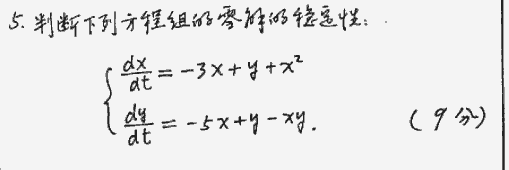 5. 判断下列方程组的零解的稳定性:
dx/dt = -3x + y + x²
dy/dt = -5x + y - xy. (9分)